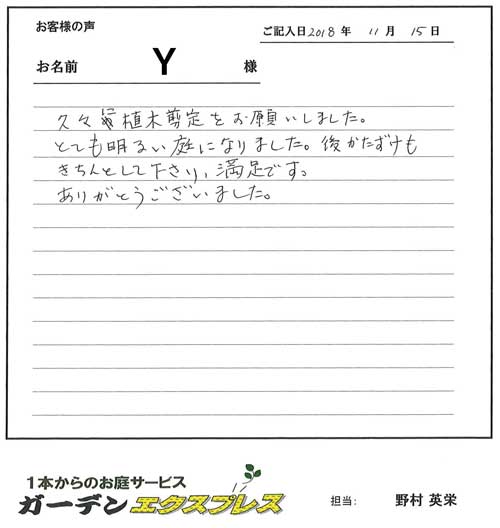 お客様の声
ご記入日2018年 11月 15日
お名前 Y 様
久々に植木剪定をお願いしました。
とても明るい庭になりました。後かたずけも
きちんとして下さり、満足です。
ありがとうございました。
1本からのお庭サービス
ガーデンエクスプレス
担当: 野村 英栄